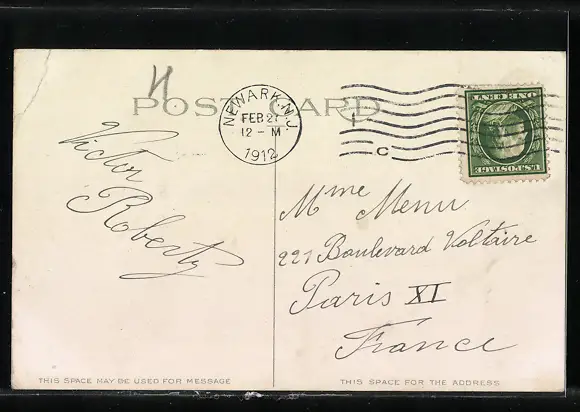 POST CARD
NEWARK, N.J.
FEB 27
12 - M
1912
C
U.S. POSTAGE
Victor
Roberty
Mme Menu
221 Boulevard Voltaire
Paris XI
France
THIS SPACE MAY BE USED FOR MESSAGE
THIS SPACE FOR THE ADDRESS